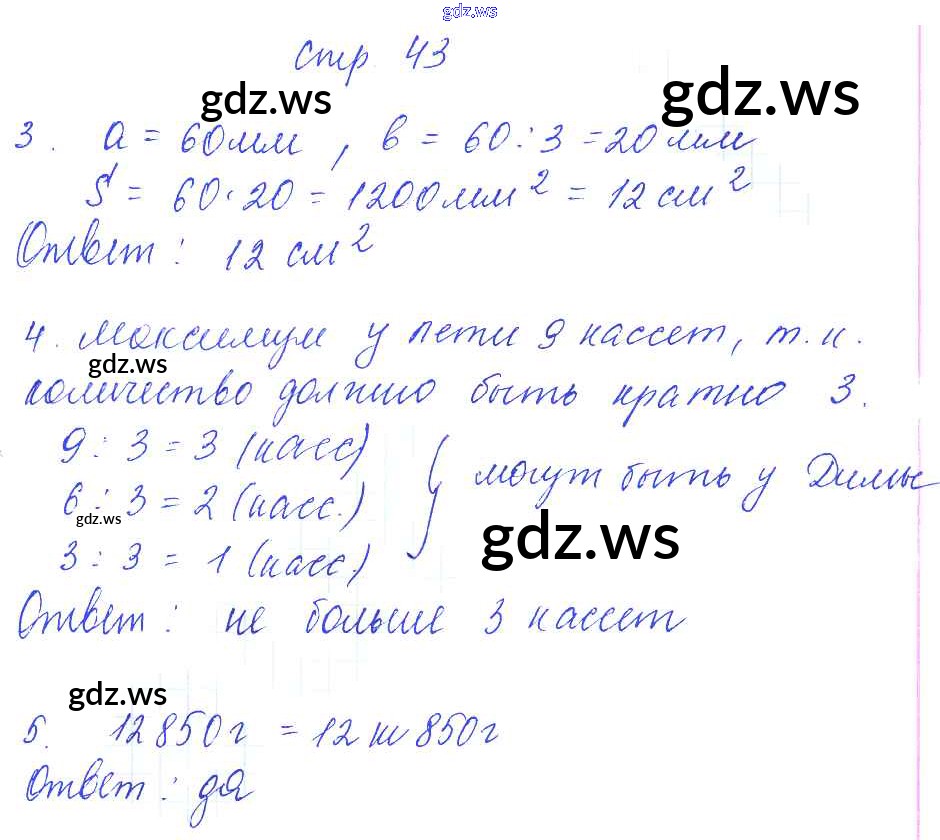 gdz.ws
стр. 43
gdz.ws
gdz.ws
3. a = 60 мм, b = 60 : 3 = 20 мм
S = 60 · 20 = 1200 мм² = 12 см²
Ответ: 12 см²
4. Максимум у Пети 9 кассет, т.к.
gdz.ws
количество должно быть кратно 3.
9 : 3 = 3 (касс)
6 : 3 = 2 (касс.) } могут быть у Димы
gdz.ws
gdz.ws
3 : 3 = 1 (касс.)
Ответ: не больше 3 кассет
gdz.ws
5. 12850 г = 12 кг 850 г
Ответ: да